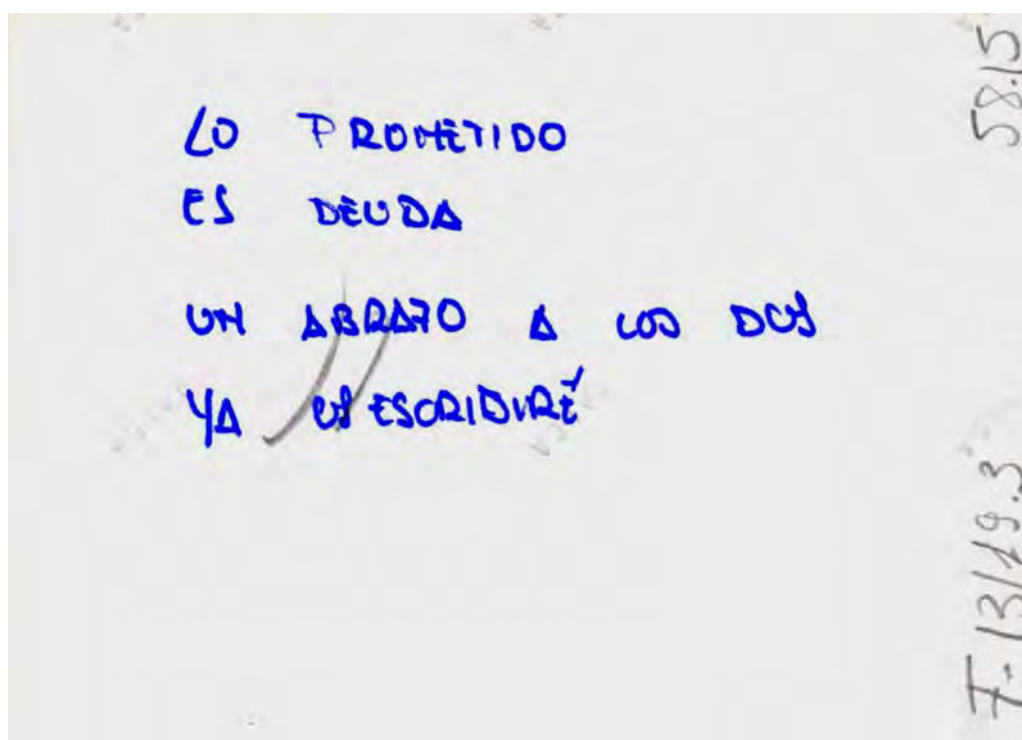 LO PROMETIDO
ES DEUDA
UN ABRAZO A LOS DOS
YA OS ESCRIBIRÉ
58.15
F-13/19.3